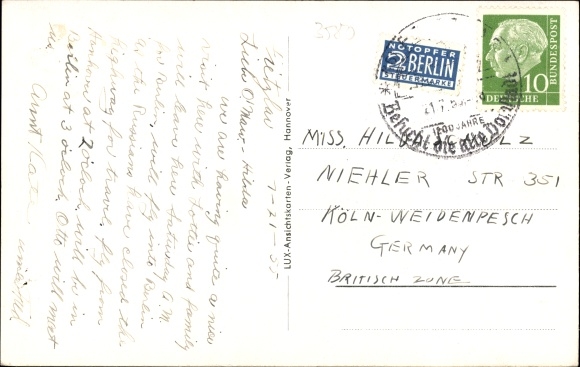 3580
Wetzlar
7-21-55
Luche O'Mary - Hilda
we are having quite a nice
visit here with Lottie and family
will leave here Saturday A.M.
for Berlin, will fly into Berlin
as the Russians have closed the
highway for travel. fly from
at 2 o'clock will be in
Berlin at 3 o'clock, Otto will meet
us
Aunt Kate
LUX-Ansichtskarten-Verlag, Hannover
NOTOPFER
2 BERLIN
STEUERMARKE
DEUTSCHE BUNDESPOST
10
21.7.55
1200 JAHRE
Besucht die alte
MISS. HILDE
NIEHLER STR 351
KÖLN-WEIDENPESCH
GERMANY
BRITISCH ZONE